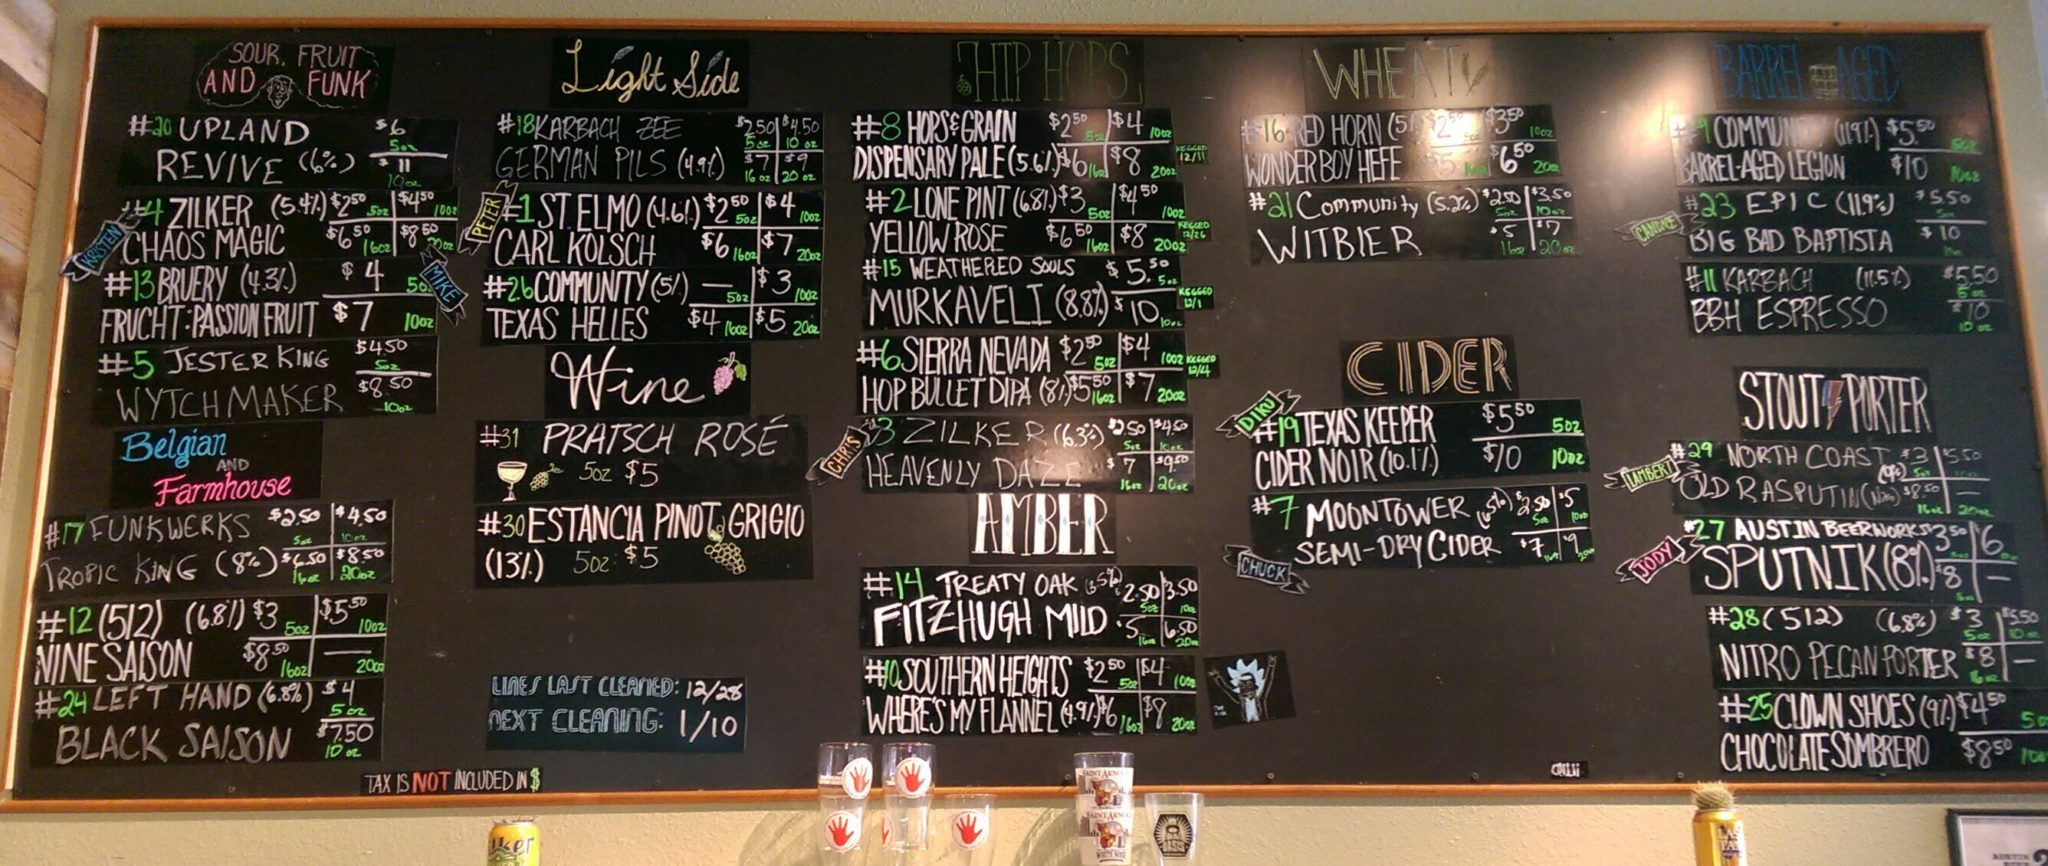 SOUR, FRUIT
AND FUNK
#20 UPLAND $6 5oz
REVIVE (6%) $11 10oz
#4 ZILKER (5.4%) $2.50 5oz $4.50 10oz
CHAOS MAGIC $6.50 16oz $8.50 20oz
KRISTEN
#13 BRUERY (4.3%) $4 5oz
FRUCHT: PASSION FRUIT $7 10oz
MIKE
#5 JESTER KING $4.50 5oz
WYTCHMAKER $8.50 10oz
Belgian
AND
Farmhouse
#17 FUNKWERKS $2.50 5oz $4.50 10oz
TROPIC KING (8%) $6.50 16oz $8.50 20oz
#12 (512) (6.8%) $3 5oz $5.50 10oz
NINE SAISON $8.50 16oz — 20oz
#24 LEFT HAND (6.8%) $4 5oz
BLACK SAISON $7.50 10oz
TAX IS NOT INCLUDED IN $
Light Side
#18 KARBACH ZEE $2.50 5oz $4.50 10oz
GERMAN PILS (4.9%) $7 16oz $9 20oz
PETER
#1 ST. ELMO (4.6%) $2.50 5oz $4 10oz
CARL KOLSCH $6 16oz $7 20oz
#26 COMMUNITY (5%) — 5oz $3 10oz
TEXAS HELLES $4 16oz $5 20oz
Wine
#31 PRATSCH ROSÉ
5oz $5
#30 ESTANCIA PINOT GRIGIO
(13%) 5oz $5
LINES LAST CLEANED: 12/28
NEXT CLEANING: 1/10
HIP HOPS
#8 HOPS & GRAIN $2.50 5oz $4 10oz
DISPENSARY PALE (5.6%) $6 16oz $8 20oz
KEGGED 12/11
#2 LONE PINT (6.8%) $3 5oz $4.50 10oz
YELLOW ROSE $6.50 16oz $8 20oz
KEGGED 12/26
#15 WEATHERED SOULS $5.50 5oz
MURKAVELI (8.8%) $10 10oz
KEGGED 12/1
#6 SIERRA NEVADA $2.50 5oz $4 10oz
HOP BULLET DIPA (8%) $5.50 16oz $7 20oz
KEGGED 12/4
#3 ZILKER (6.3%) $2.50 5oz $4.50 10oz
HEAVENLY DAZE $7 16oz $9.50 20oz
CHRIS
AMBER
#14 TREATY OAK 2.50 5oz 3.50 10oz
FITZHUGH MILD $5 16oz 6.50 20oz
#10 SOUTHERN HEIGHTS $2.50 5oz $4 10oz
WHERE'S MY FLANNEL (4.9%) $6 16oz $8 20oz
WHEAT
#16 RED HORN (5%) $2.50 $3.50 10oz
WONDERBOY HEFE $5 16oz $6.50 20oz
#21 Community (5.2%) $2.50 5oz $3.50 10oz
WITBIER $5 16oz $7 20oz
CIDER
DIRU
#19 TEXAS KEEPER $5.50 5oz
CIDER NOIR (10.1%) $10 10oz
#7 MOONTOWER $2.50 5oz $5 10oz
SEMI-DRY CIDER $7 16oz $9 20oz
CHUCK
BARREL AGED
#9 COMMUNITY (11.9%) $5.50 5oz
BARREL-AGED LEGION $10 10oz
#23 EPIC (11.9%) $5.50 5oz
BIG BAD BAPTISTA $10 10oz
CANDACE
#11 KARBACH (11.5%) $5.50 5oz
BBH ESPRESSO $10 10oz
STOUT PORTER
#29 NORTH COAST (9%) $3 5oz $5.50
OLD RASPUTIN (Nitro) $8.50 16oz — 20oz
LAMBERT
#27 AUSTIN BEERWORKS $3.50 $6
SPUTNIK (8%) $8 —
JODY
#28 (512) (6.8%) $3 5oz $5.50 10oz
NITRO PECAN PORTER $8 16oz —
#25 CLOWN SHOES (9%) $4.50 5oz
CHOCOLATE SOMBRERO $8.50 10oz
SAINT ARNOLD
SAINT ARNOLD
OASIS